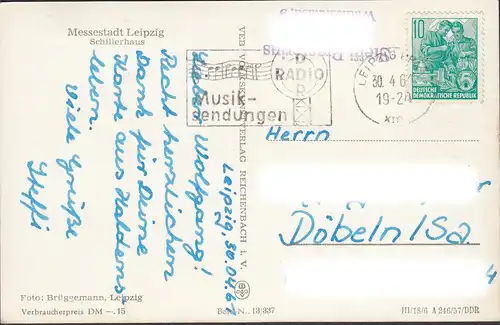 Messestadt Leipzig
Schillerhaus
Leipzig, 30.04.6
Lieber Wolfgang!
Recht herzlichen
Dank für Deine
Karte aus Haldens-
leben.
Viele Grüße
Steffi
Foto: Brüggemann, Leipzig
Verbraucherpreis DM –.15
Best.-N. 13/337
REICHENBACH I. V.
RADIO
Musik-
sendungen
LEIPZIG
30. 4. 6
19-20
10
DEUTSCHE
DEMOKRATISCHE REPUBLIK
Herrn
Döbeln/Sa.
4
III/18/6 A 246/57/DDR